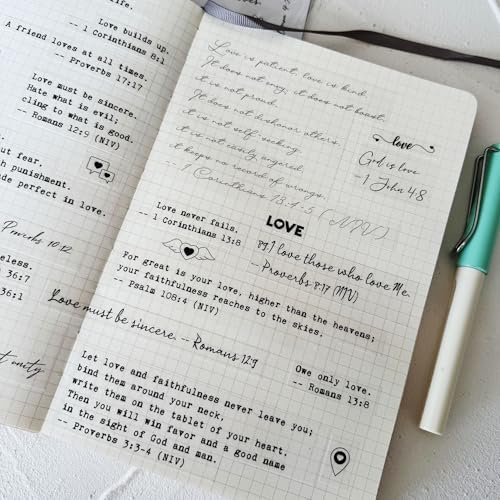 Love builds up.
-- 1 Corinthians 8:1
A friend loves at all times.
-- Proverbs 17:17
Love must be sincere.
Hate what is evil;
cling to what is good.
-- Romans 12:9 (NIV)
out fear.
h punishment.
de perfect in love.
Proverbs 10:12
eless.
36:7
36:1
t unity
Love is patient, love is kind.
It does not envy, it does not boast,
it is not proud.
It does not dishonor others,
it is not self-seeking,
it is not easily angered,
it keeps no record of wrongs.
-- 1 Corinthians 13:4-5 (NIV)
love
God is love
-1 John 4:8
Love never fails.
-- 1 Corinthians 13:8
LOVE
8:17 I love those who love Me.
-- Proverbs 8:17 (NIV)
For great is your love, higher than the heavens;
your faithfulness reaches to the skies.
-- Psalm 108:4 (NIV)
Love must be sincere. -- Romans 12:9
Owe only love.
-- Romans 13:8
Let love and faithfulness never leave you;
bind them around your neck,
write them on the tablet of your heart.
Then you will win favor and a good name
in the sight of God and man.
-- Proverbs 3:3-4 (NIV)